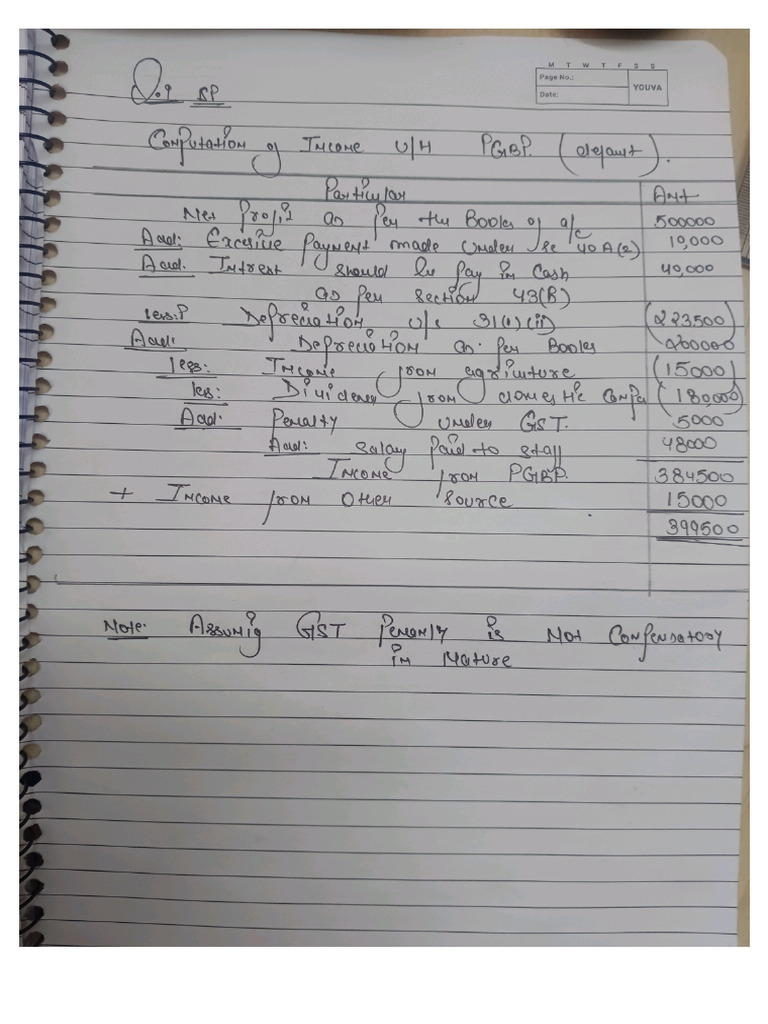 M T W T F S S
Page No.:
Date:
YOUVA
Q.9 BP
Computation of Income U/H PGBP. (default).
Particular Amt
Net Profit as Per the Books of a/c 500000
Add: Excesive Payment made Under Se 40A(2) 10,000
Add. Intrest should be pay in Cash 40,000
as per section 43(B)
less: Depreciation u/s 31(1)(ii) (223500)
Add: Depreciation as per Books 200000
less: Income from agriculture (15000)
les: Dividend from domestic Compa (180,000)
Add: Penalty under GST. 5000
Add: salary Paid to staff 48000
Income from PGBP. 384500
+ Income from other source 15000
399500
Note: Assumig GST Penanly is Not Compensatory
in Nature